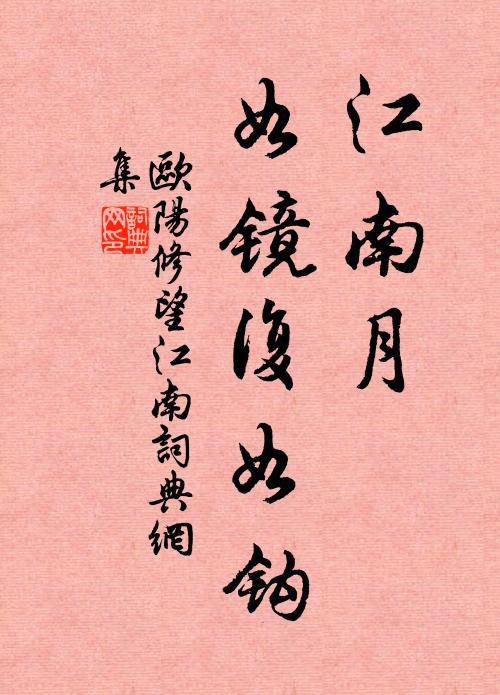 江南月
如镜復如钩
歐陽修望江南詞典網
集
詞典
网印